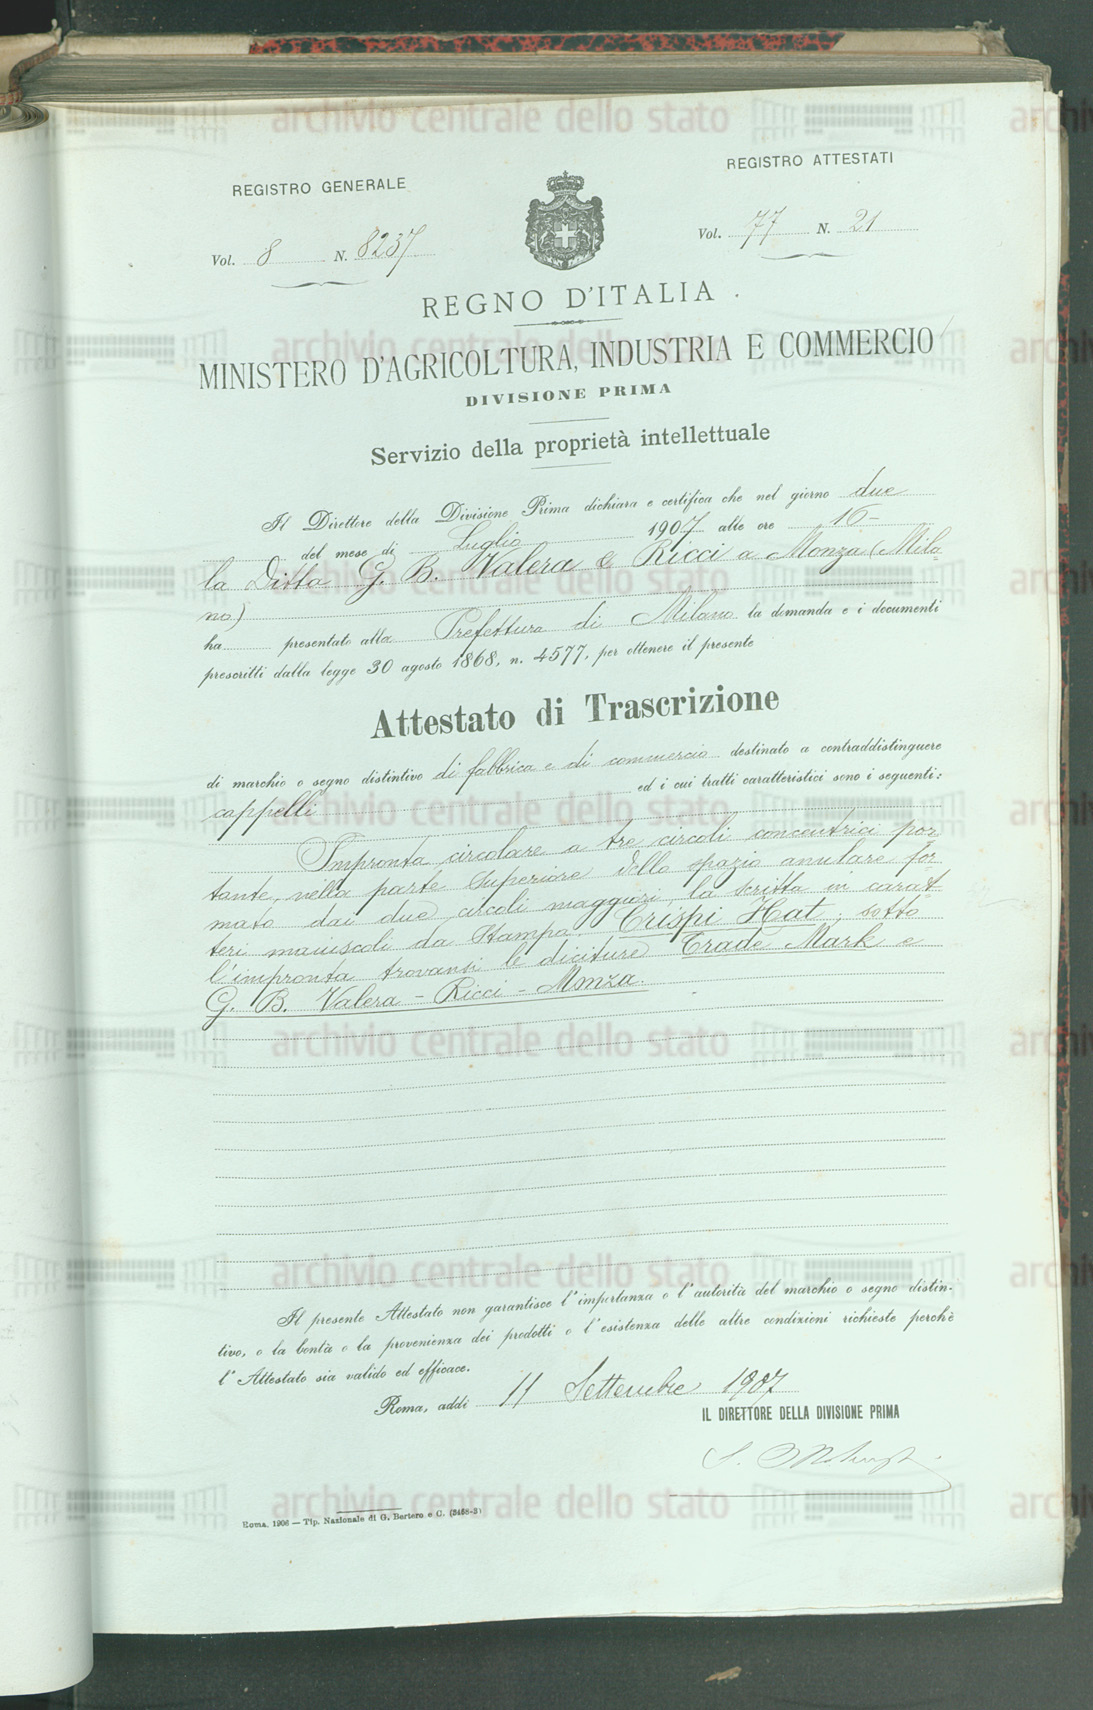 REGISTRO GENERALE
Vol. 8 N. 8237
REGISTRO ATTESTATI
Vol. 77 N. 21
REGNO D'ITALIA
MINISTERO D'AGRICOLTURA, INDUSTRIA E COMMERCIO
DIVISIONE PRIMA
Servizio della proprietà intellettuale
Il Direttore della Divisione Prima dichiara e certifica che nel giorno due
del mese di Luglio 1907 alle ore 16-
la Ditta G. B. Valera & Ricci a Monza (Mila
no)
ha presentato alla Prefettura di Milano la domanda e i documenti
prescritti dalla legge 30 agosto 1868, n. 4577, per ottenere il presente
Attestato di Trascrizione
di marchio o segno distintivo di fabbrica e di commercio destinato a contraddistinguere
cappelli ed i cui tratti caratteristici sono i seguenti:
Impronta circolare a tre circoli concentrici por
tante, nella parte superiore dello spazio anulare for
mato dai due circoli maggiori, la scritta in carat
teri maiuscoli da stampa: Crispi Hat; sotto
l'impronta trovansi le diciture Trade Mark e
G. B. Valera - Ricci - Monza.
Il presente Attestato non garantisce l'importanza o l'autorità del marchio o segno distin-
tivo, o la bontà o la provenienza dei prodotti o l'esistenza delle altre condizioni richieste perchè
l'Attestato sia valido ed efficace.
Roma, addì 11 Settembre 1907
IL DIRETTORE DELLA DIVISIONE PRIMA
Roma, 1906 — Tip. Nazionale di G. Bertero e C. (5468-3)
archivio centrale dello stato